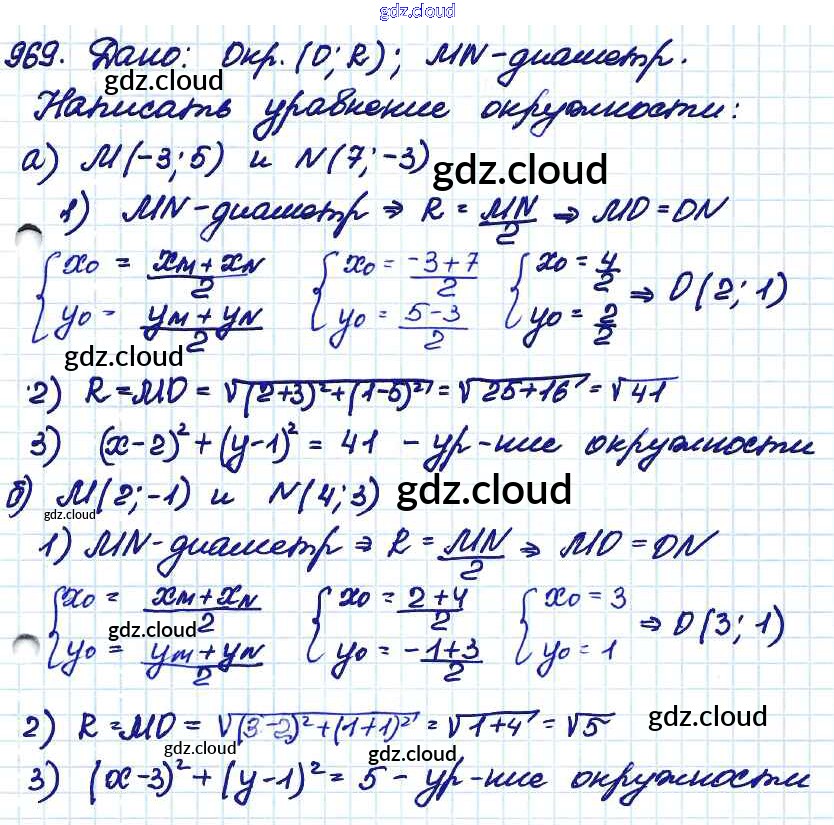 gdz.cloud
969. Дано: Окр. (O; R); MN-диаметр.
gdz.cloud
Написать уравнение окружности:
а) M(-3; 5) и N(7; -3)
gdz.cloud
1) MN-диаметр ⇒ R = MN/2 ⇒ MO = ON
{ x₀ = (xM + xN)/2 { x₀ = (-3+7)/2 { x₀ = 4/2 ⇒ O(2; 1)
{ y₀ = (yM + yN)/2 { y₀ = (5-3)/2 { y₀ = 2/2
gdz.cloud
2) R = MO = √((2+3)² + (1-5)²) = √(25+16) = √41
3) (x-2)² + (y-1)² = 41 - ур-ние окружности
б) M(2; -1) и N(4; 3) gdz.cloud
gdz.cloud
1) MN-диаметр ⇒ R = MN/2 ⇒ MO = ON
gdz.cloud
{ x₀ = (xM + xN)/2 { x₀ = (2+4)/2 { x₀ = 3 ⇒ O(3; 1)
gdz.cloud
{ y₀ = (yM + yN)/2 { y₀ = (-1+3)/2 { y₀ = 1
2) R = MO = √((3-2)² + (1+1)²) = √(1+4) = √5 gdz.cloud
gdz.cloud gdz.cloud
3) (x-3)² + (y-1)² = 5 - ур-ние окружности